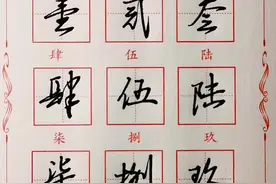 壹 贰 叁
肆 伍 陆
肆 伍 陆
柒 捌 玖
柒 捌 玖